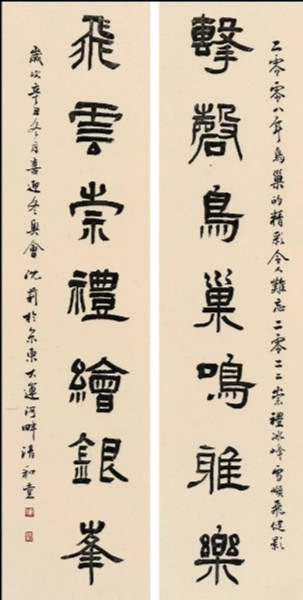 二零零八年鳥巢的精彩令人難忘二零二二崇禮冰峰雪飛健影
擊磬鳥巢鳴雅樂
飛雲崇禮繪銀峯
歲次辛丑冬月喜迎冬奧會沈莉於京東大運河畔清和堂